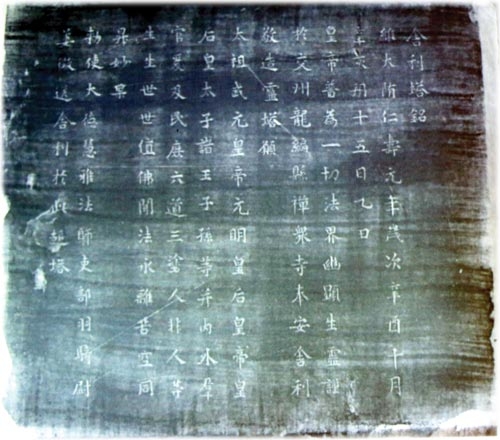 舍利塔銘
維大隋仁壽元年歲次辛酉十月
辛亥朔十五日乙丑
皇帝普為一切法界幽顯生靈謹
於交州龍編縣禪衆寺奉安舍利
敬造靈塔願
太祖武元皇帝元明皇后皇帝皇
后皇太子諸王子孫等并內外羣
官爰及民庶六道三塗人非人等
生生世世值佛聞法永離苦空同
昇妙果
勅使大德慧雅法師吏部羽騎尉
姜徽送舍利於此起塔